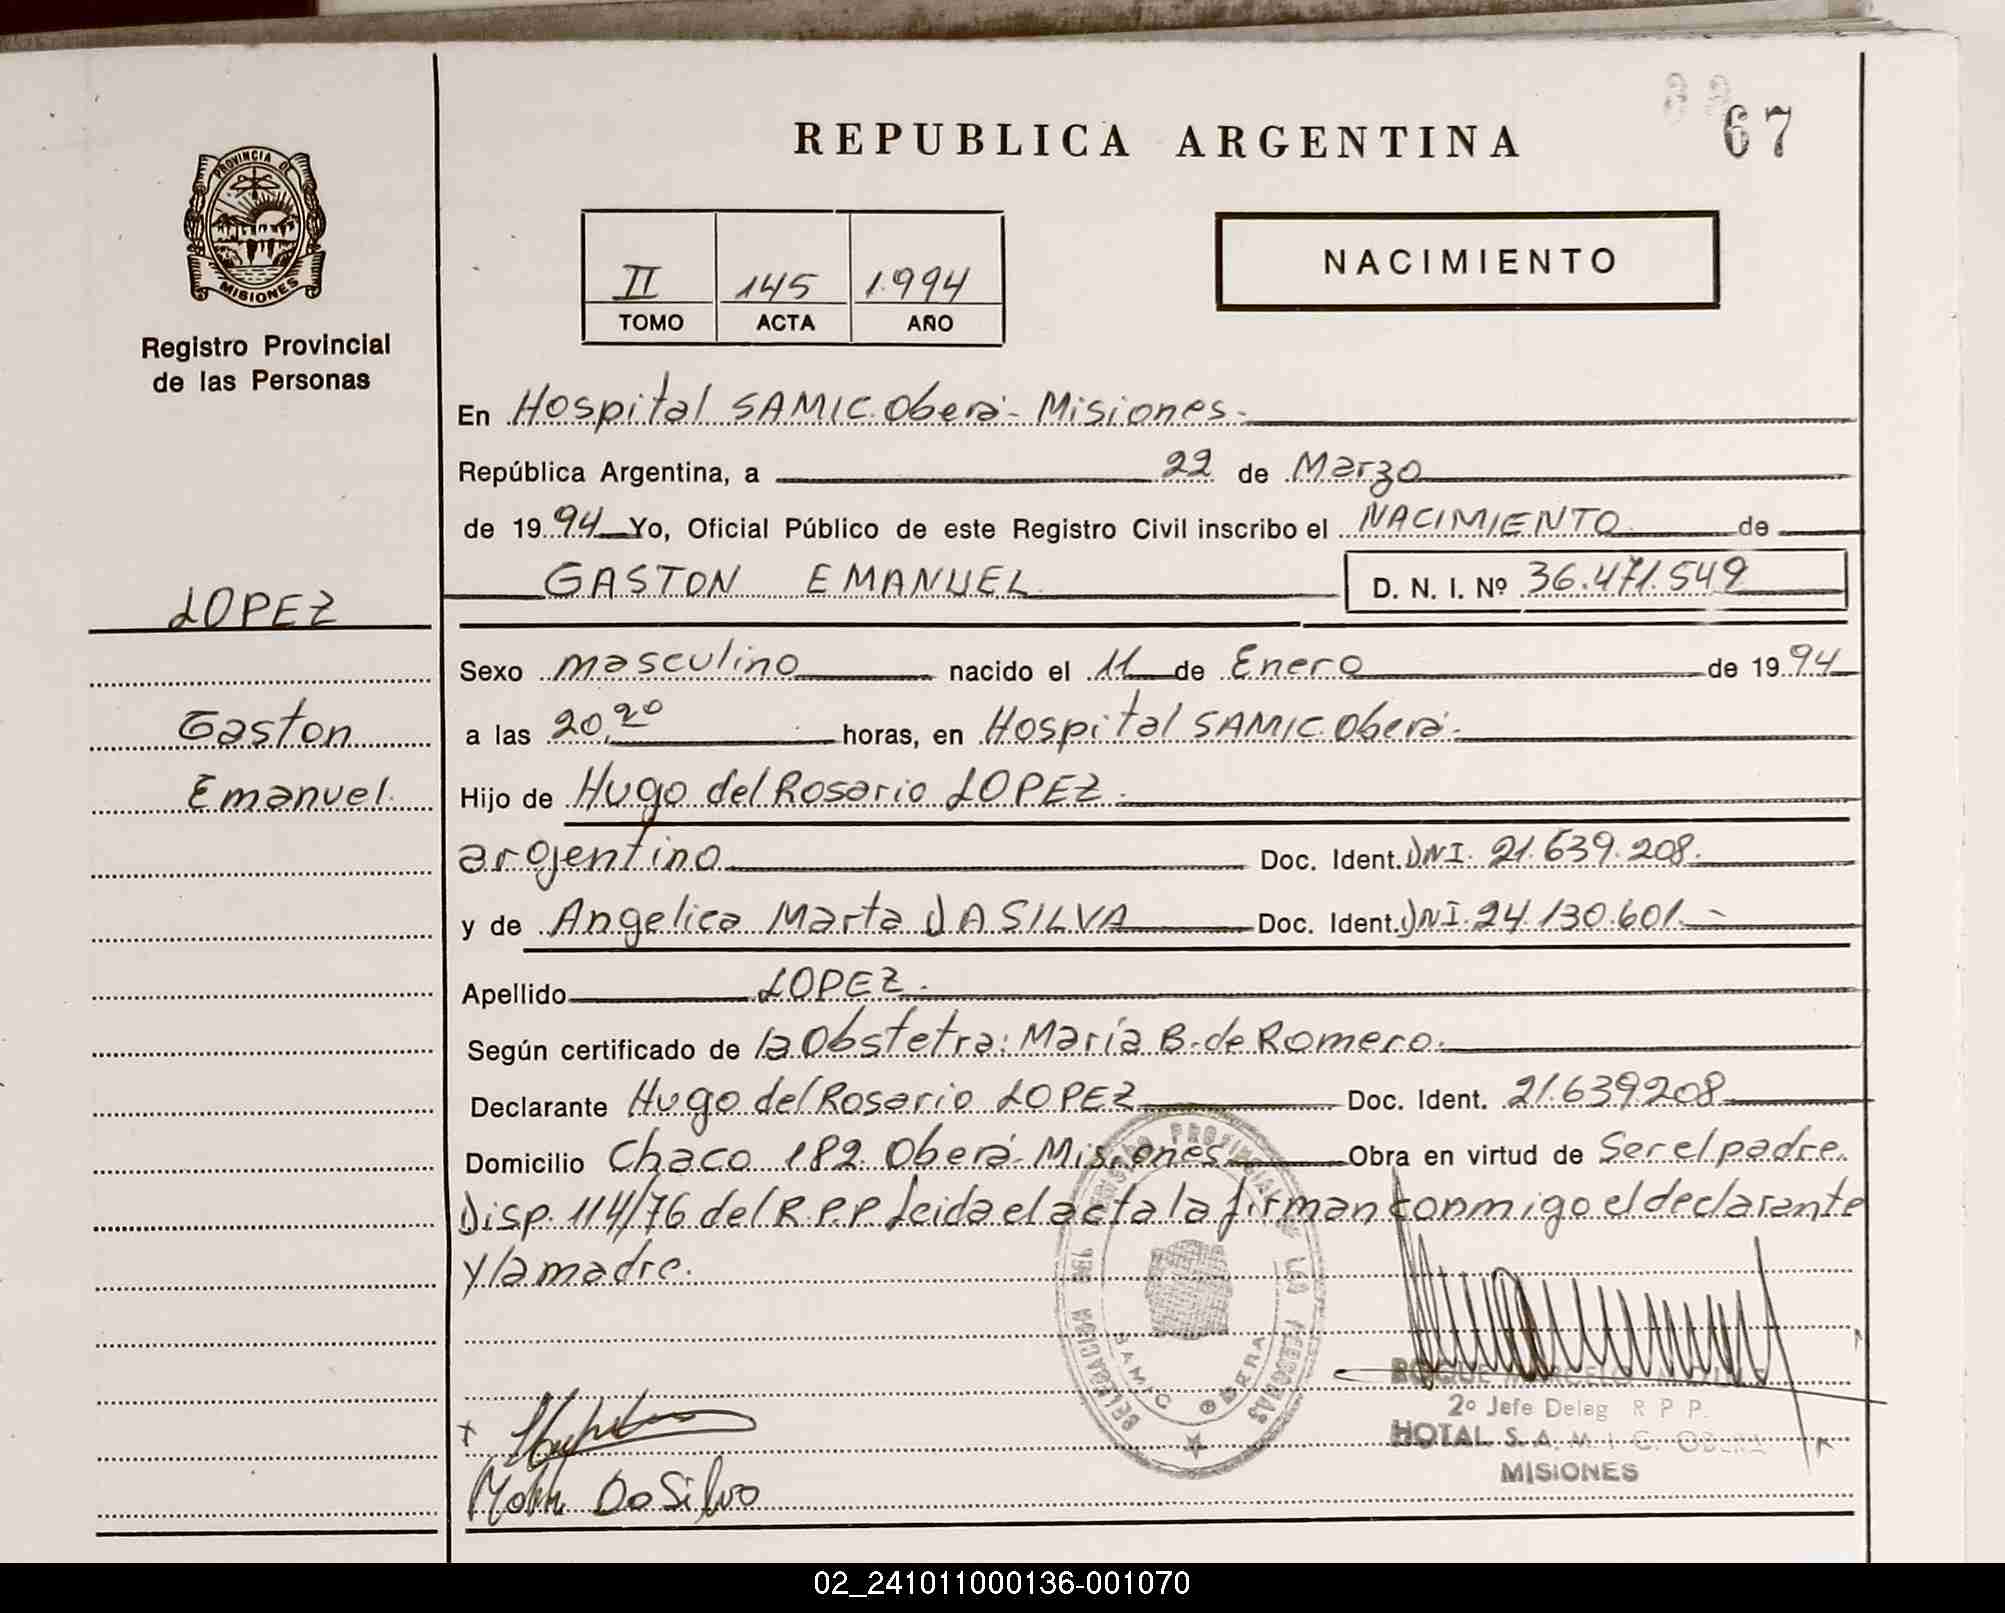 67
REPUBLICA ARGENTINA
PROVINCIA DE
MISIONES
Registro Provincial
de las Personas
II 145 1.994
TOMO ACTA AÑO
NACIMIENTO
En Hospital SAMIC. Oberá - Misiones.
República Argentina, a 22 de Marzo
de 1994 Yo, Oficial Público de este Registro Civil inscribo el NACIMIENTO de
GASTON EMANUEL D. N. I. Nº 36.471.549
LOPEZ
Gaston
Emanuel.
Sexo masculino nacido el 11 de Enero de 1994
a las 20,20 horas, en Hospital SAMIC. Oberá.
Hijo de Hugo del Rosario LOPEZ.
argentino Doc. Ident. DNI. 21.639.208.
y de Angelica Marta DA SILVA Doc. Ident. DNI. 24.130.601.-
Apellido LOPEZ.
Según certificado de la Obstetra: María B. de Romero.
Declarante Hugo del Rosario LOPEZ Doc. Ident. 21.639208
Domicilio Chaco 182. Oberá - Misiones Obra en virtud de Ser el padre.
Disp. 114/76 del R.P.P. Leida el acta la firman conmigo el declarante
y la madre.
DELEGACION REGISTRO PROVINCIAL DE LAS PERSONAS
SAMIC OBERA
ROQUE MARCELO
2º Jefe Deleg R P P.
HOTAL S. A. M. I. C. OBERA
MISIONES
Da Silva
02_241011000136-001070